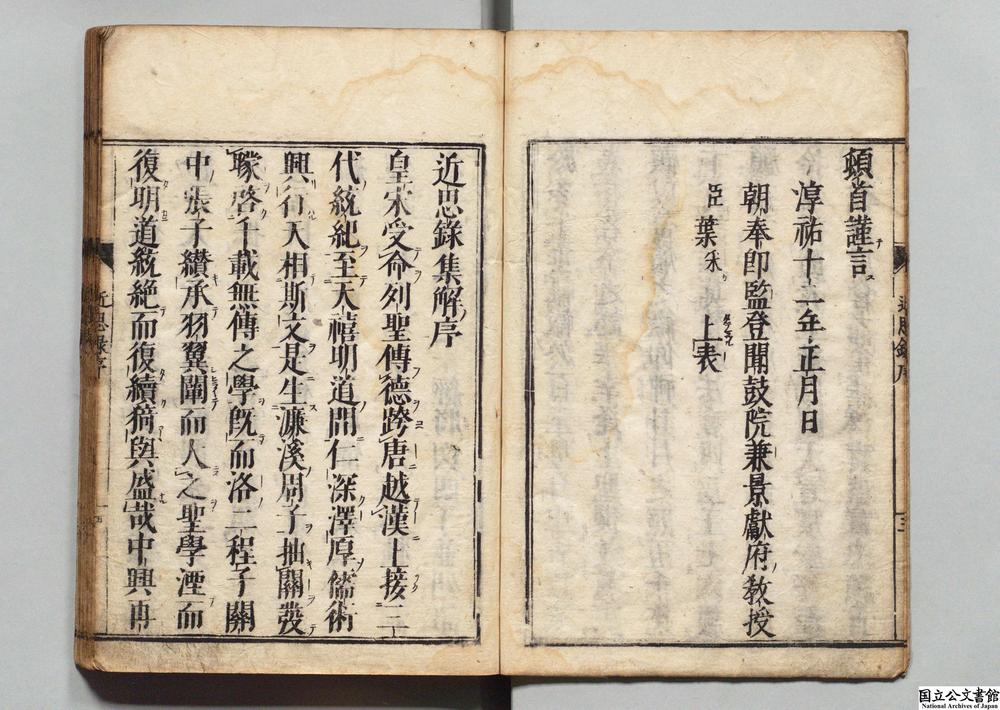 頓首謹言
淳祐十二年正月日
朝奉郎監登聞鼓院兼景獻府教授
臣葉采上表
近思錄集解序
皇宋受命列聖傳德跨唐越漢上接三
代統紀至天禧明道間仁深澤厚儒術
興行天相斯文是生濂溪周子抽關發
矇啓千載無傳之學既而洛二程子關
中張子纘承羽翼闡而大之聖學湮而
復明道統絶而復續猗與盛哉中興再
近思錄序
国立公文書館
National Archives of Japan